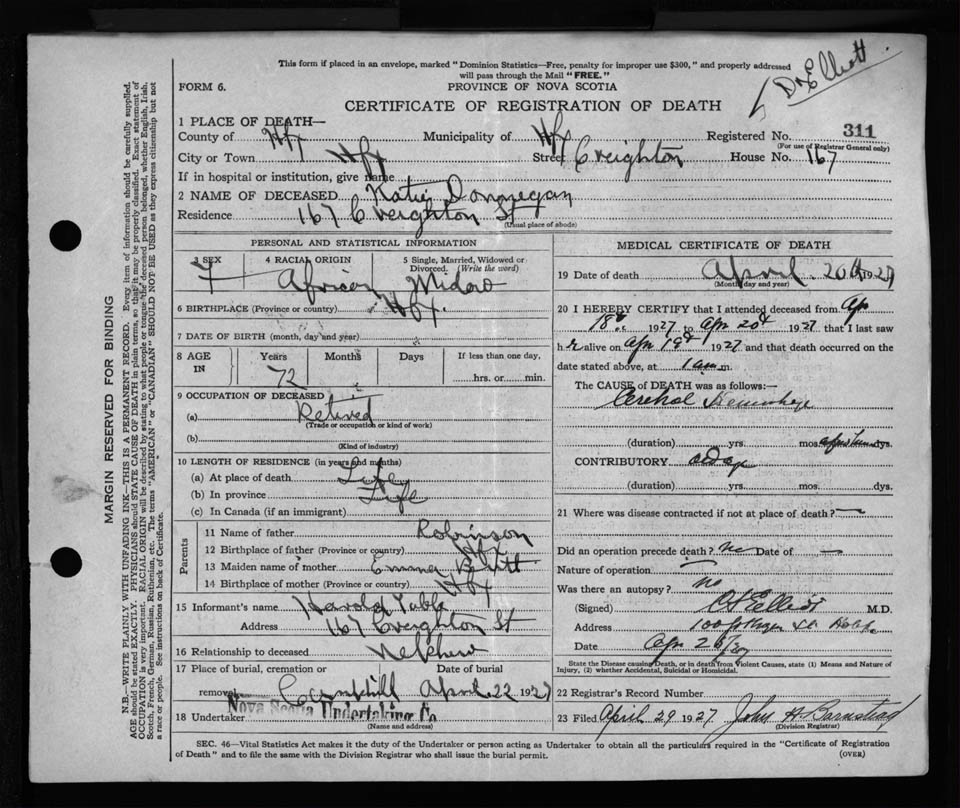 This form if placed in an envelope, marked "Dominion Statistics—Free, penalty for improper use $300," and properly addressed
will pass through the Mail "FREE."
Dr Elliott
FORM 6.
PROVINCE OF NOVA SCOTIA
CERTIFICATE OF REGISTRATION OF DEATH
1 PLACE OF DEATH—
County of Hfx Municipality of Hfx Registered No. 311
(For use of Registrar General only)
City or Town Hfx Street Creighton House No. 167
If in hospital or institution, give name
2 NAME OF DECEASED Katie Donnegan
Residence 167 Creighton St
(Usual place of abode)
PERSONAL AND STATISTICAL INFORMATION
3 SEX 4 RACIAL ORIGIN 5 Single, Married, Widowed or
Divorced. (Write the word)
F African Widow
6 BIRTHPLACE (Province or country) Hfx
7 DATE OF BIRTH (month, day and year)
8 AGE IN Years Months Days If less than one day,
72 hrs. or min.
9 OCCUPATION OF DECEASED
(a) Retired
(Trade or occupation or kind of work)
(b)
(Kind of industry)
10 LENGTH OF RESIDENCE (in years and months)
(a) At place of death Life
(b) In province Life
(c) In Canada (if an immigrant)
Parents
11 Name of father Robinson
12 Birthplace of father (Province or country) Hfx
13 Maiden name of mother Emma
14 Birthplace of mother (Province or country) Hfx
15 Informant's name Harold
Address 167 Creighton St
16 Relationship to deceased Nelphew
17 Place of burial, cremation or Date of burial
removal Camphill April 22 1927
18 Undertaker Nova Scotia Undertaking Co
(Name and address)
MEDICAL CERTIFICATE OF DEATH
19 Date of death April 20th 1927
(Month, day and year)
20 I HEREBY CERTIFY that I attended deceased from Ap
18th 1927 to Apr 20th 1927 that I last saw
her alive on Apr 19th 1927 and that death occurred on the
date stated above, at 1 a.m.
The CAUSE of DEATH was as follows:—
(duration) yrs. mos. dys.
CONTRIBUTORY old age
(duration) yrs. mos. dys.
21 Where was disease contracted if not at place of death? —
Did an operation precede death? no Date of —
Nature of operation —
Was there an autopsy? no
(Signed) Elliott M.D.
Address
Date Apr
State the Disease causing Death, or in death from Violent Causes, state (1) Means and Nature of
Injury, (2) whether Accidental, Suicidal or Homicidal.
22 Registrar's Record Number
23 Filed April 29 1927 John H Barnstead
(Division Registrar)
SEC. 46—Vital Statistics Act makes it the duty of the Undertaker or person acting as Undertaker to obtain all the particulars required in the "Certificate of Registration
of Death" and to file the same with the Division Registrar who shall issue the burial permit. (OVER)
MARGIN RESERVED FOR BINDING
N.B.—WRITE PLAINLY WITH UNFADING INK—THIS IS A PERMANENT RECORD. Every item of information should be carefully supplied.
AGE should be stated EXACTLY. PHYSICIANS should STATE CAUSE OF DEATH in plain terms, so that it may be properly classified. Exact statement of
OCCUPATION is very important. RACIAL ORIGIN will be described by stating to what people or tongue the deceased person belonged, whether English, Irish,
Scotch, French, German, Russian, Ruthenian, etc. The terms "AMERICAN" or "CANADIAN" SHOULD NOT BE USED as they express citizenship but not
a race or people. See instructions on back of Certificate.